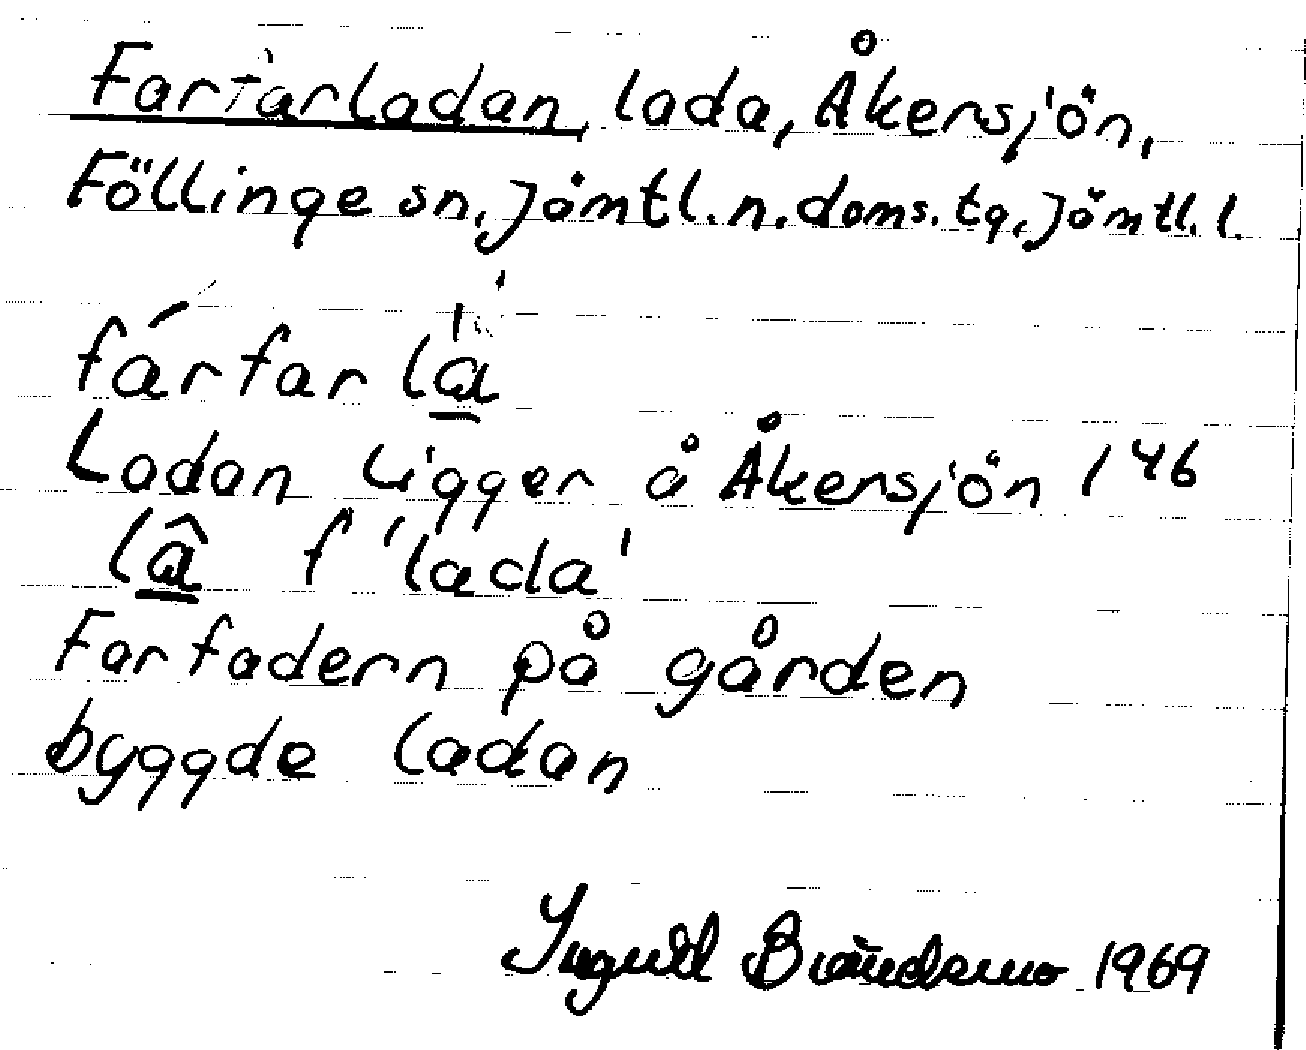 Farfarladan, lada, Åkersjön,
Föllinge sn. Jämtl. n. doms. tg, Jämtl. l.
fárfar là̱
Ladan ligger å Åkersjön 1 46
lâ̱ f 'lada'
Farfadern på gården
byggde ladan
Ingvill Brändemo 1969